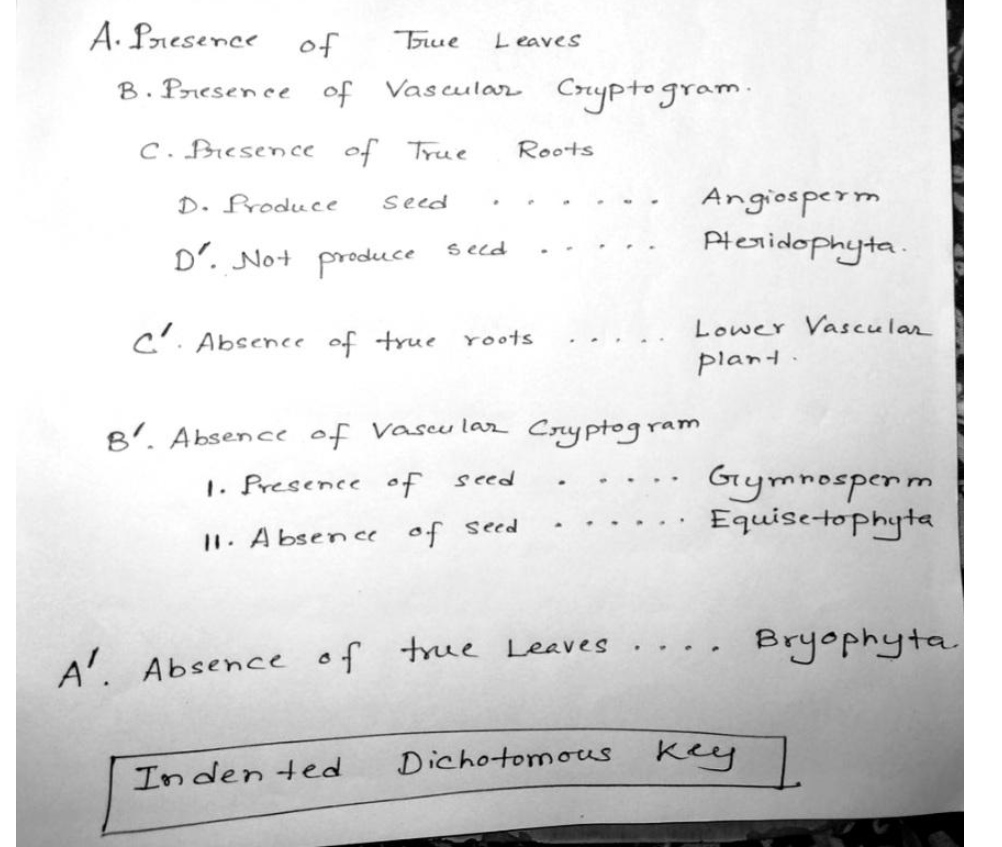 A. Presence of True Leaves
B. Presence of Vascular Cryptogram.
C. Presence of True Roots
D. Produce seed . . . . . . . Angiosperm
D'. Not produce seed . . . . . Pteridophyta.
C'. Absence of true roots . . . . . Lower Vascular
plant.
B'. Absence of Vascular Cryptogram
I. Presence of seed . . . . . Gymnosperm
II. Absence of seed . . . . . . Equisetophyta
A'. Absence of true Leaves . . . . Bryophyta.
Indented Dichotomous Key